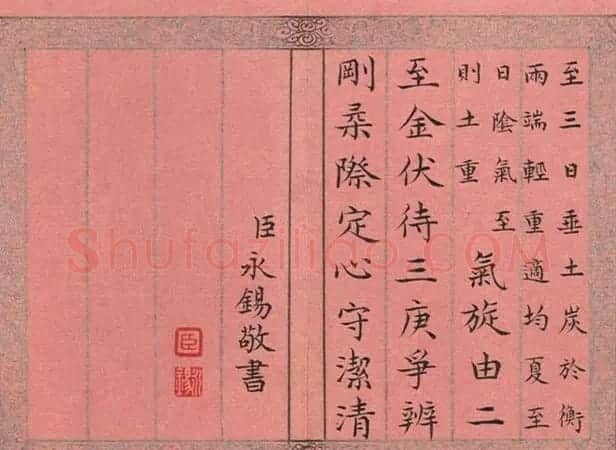 至三日垂土炭於衡
兩端輕重適均夏至
日陰氣至
則土重
氣旋由二
至金伏待三庚爭辨
剛柔際定心守潔清
臣永錫敬書
臣
永錫
Shufaziliao.COM